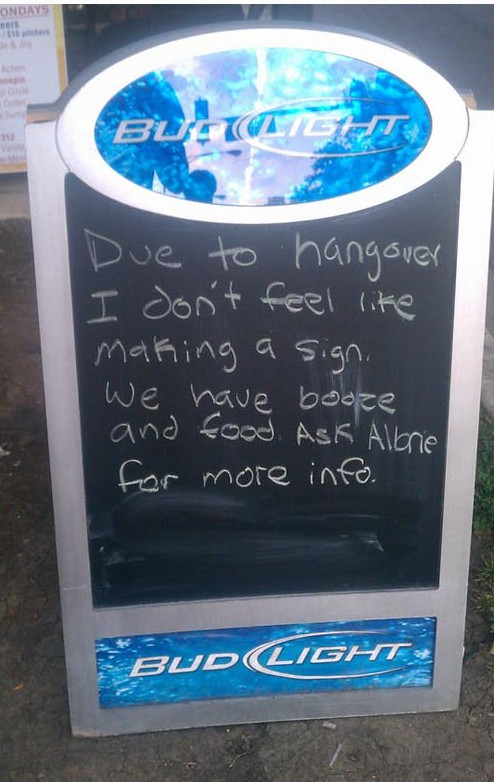 ONDAYS
$16 pitchers
Action
Circle
312
BUD LIGHT
Due to hangover
I don't feel like
making a sign.
We have booze
and food. Ask Albrie
for more info.
BUD LIGHT